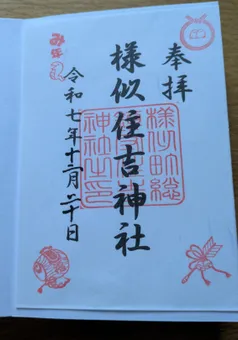 奉拝
様似住吉神社
令和七年十二月二十日
み年
様似町総
神社之印